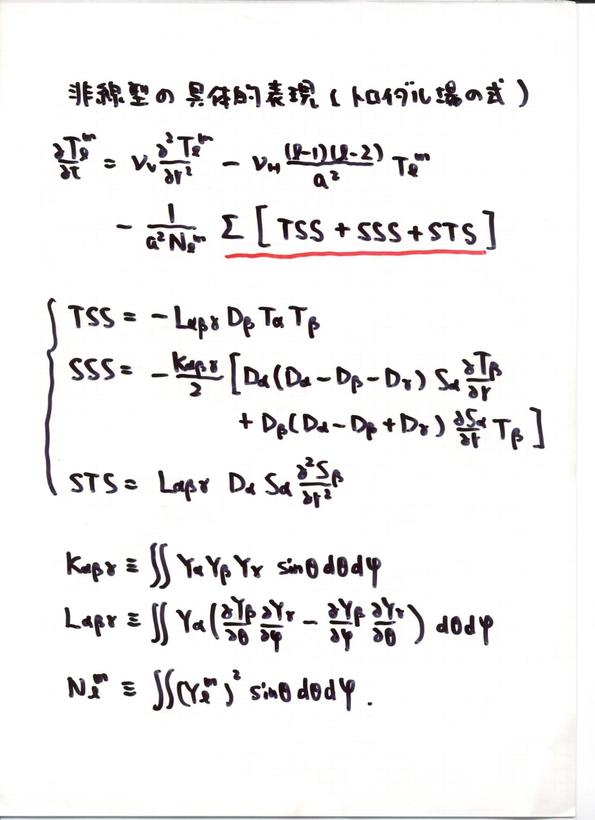 非線型の具体的表現(トロイダル場の式)
∂Tₗᵐ/∂t = νᵥ ∂²Tₗᵐ/∂r² − ν_H (ℓ-1)(ℓ-2)/a² Tₗᵐ
− 1/(a²Nₗᵐ) Σ [TSS + SSS + STS]
TSS = −Lαβγ Dβ Tα Tβ
SSS = −Kαβγ/2 [Dα(Dα − Dβ − Dγ) Sα ∂Tβ/∂r
+ Dβ(Dα − Dβ + Dγ) ∂Sα/∂r Tβ]
STS = Lαβγ Dα Sα ∂²Sβ/∂r²
Kαβγ ≡ ∬ Yα Yβ Yγ sinθ dθ dφ
Lαβγ ≡ ∬ Yα (∂Yβ/∂θ ∂Yγ/∂φ − ∂Yβ/∂φ ∂Yγ/∂θ) dθ dφ
Nₗᵐ ≡ ∬ (Yₗᵐ)² sinθ dθ dφ.